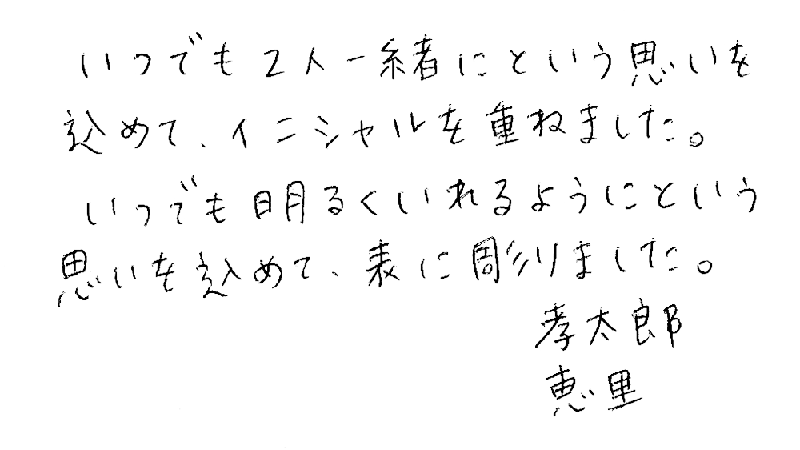 いつでも2人一緒にという思いを
込めて、イニシャルを重ねました。
いつでも明るくいれるようにという
思いを込めて、表に彫りました。
孝太郎
恵里